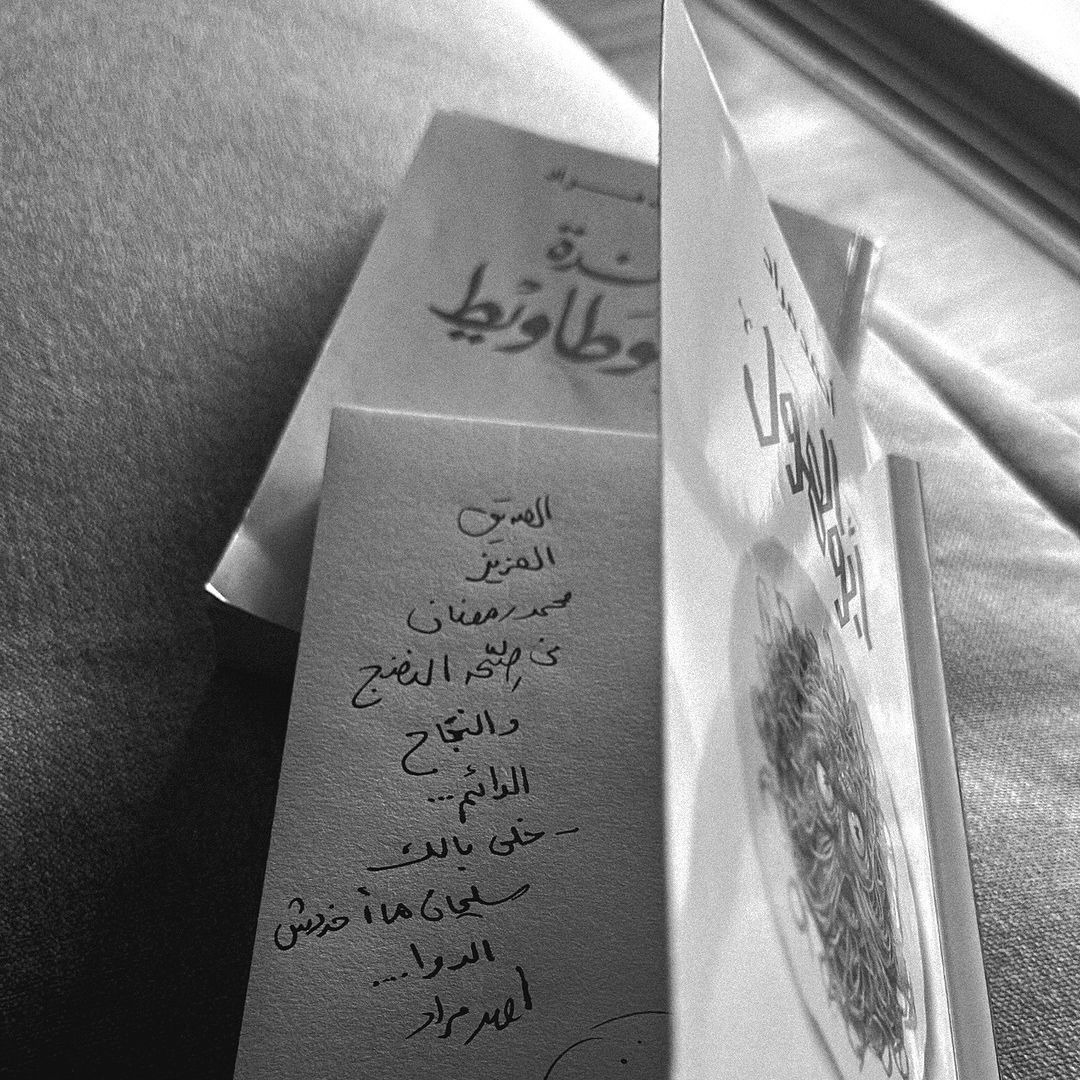 مراد
وطاويط
الصديق
العزيز
محمد رمضان
فى صحة النضج
والنجاح
الدائم...
- خلى بالك
سليمان ما أخدش
الدوا....
أحمد مراد